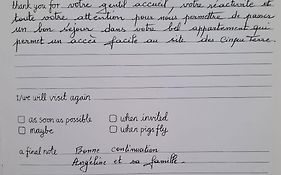 thank you for votre gentil accueil, votre réactivité et
toute votre attention pour nous permettre de passer
un bon séjour dans votre bel appartement qui
permet un accès facile au site des Cinque Terre.
we will visit again
as soon as possible
when invited
maybe
when pigs fly
a final note Bonne continuation
Angéline et sa famille.